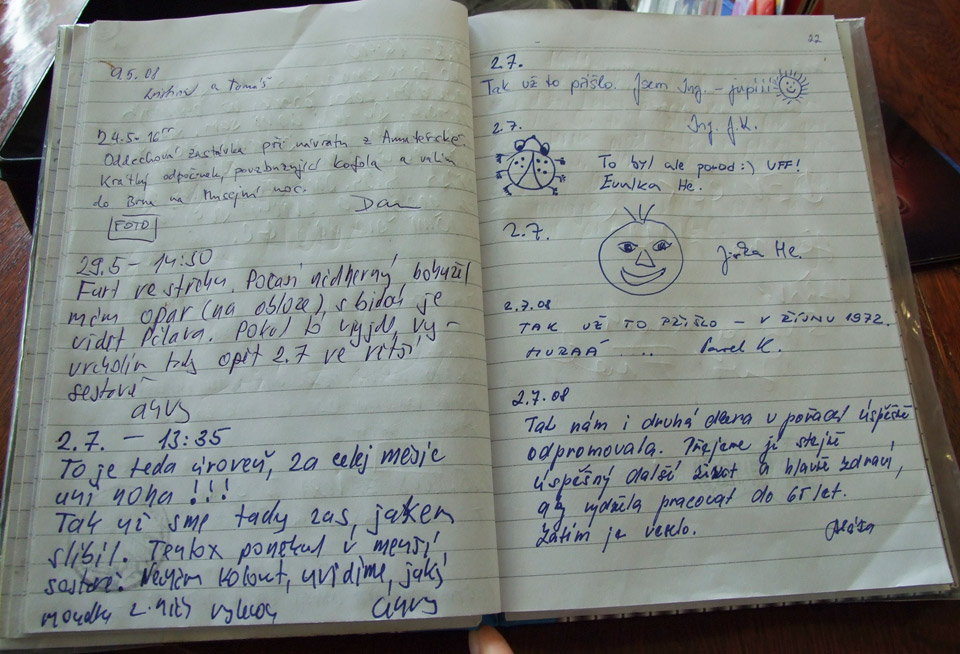 9.5.08
a Tomáš
24.5 - 16
Oddechová zastávka při návratu z
Krátký odpočinek, povzbuzující kofola a
do Brna na Musejní noc.
Dan
FOTO
29.5 - 14:50
Furt ve střehu. Počasí nádherný bohužel
mírnej opar (na obloze), s bídou je
vidět Pálava. Pokud to vyjde, vy-
vrcholím tady opět 2.7 ve větší
sestavě
2.7. - 13:35
To je teda úroveň, za celej měsíc
ani noha !!!
Tak už sme tady zas, jakem
slíbil. Tenlox poněkud v menší
sestavě. uvidíme, jaký
moudra z nich
22
2.7.
Tak už to přišlo. Jsem Ing. - jupííí
Ing. J.K.
2.7.
To byl ale porod :) UFF!
Evulka He.
2.7.
Jirka He.
2.7.08
TAK UŽ TO PŘIŠLO - V ŘÍJNU 1972.
HURÁÁ .. Pavel K.
2.7.08
Tak nám i druhá dcera v pořadí úspěšně
odpromovala. Přejeme jí stejně
úspěšný další život a hlavně zdraví,
aby vydržela pracovat do 65 let.
Zatím je veselo.